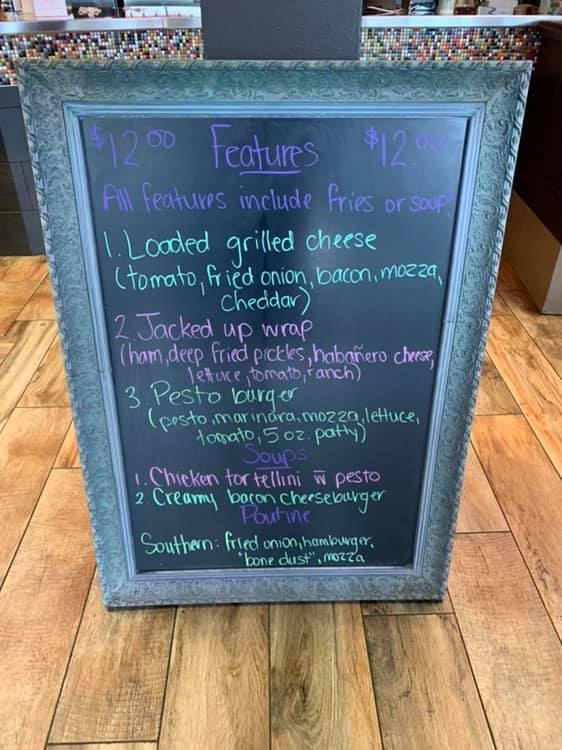 $12.00 Features $12.00
All features include fries or soup.
1. Loaded grilled cheese
(tomato, fried onion, bacon, mozza,
cheddar)
2. Jacked up wrap
(ham, deep fried pickles, habañero cheese,
lettuce, tomato, ranch)
3. Pesto burger
(pesto, marinara, mozza, lettuce,
tomato, 5 oz. patty)
Soups
1. Chicken tortellini w̅ pesto
2 Creamy bacon cheeseburger
Poutine
Southern: fried onion, hamburger,
"bone dust", mozza